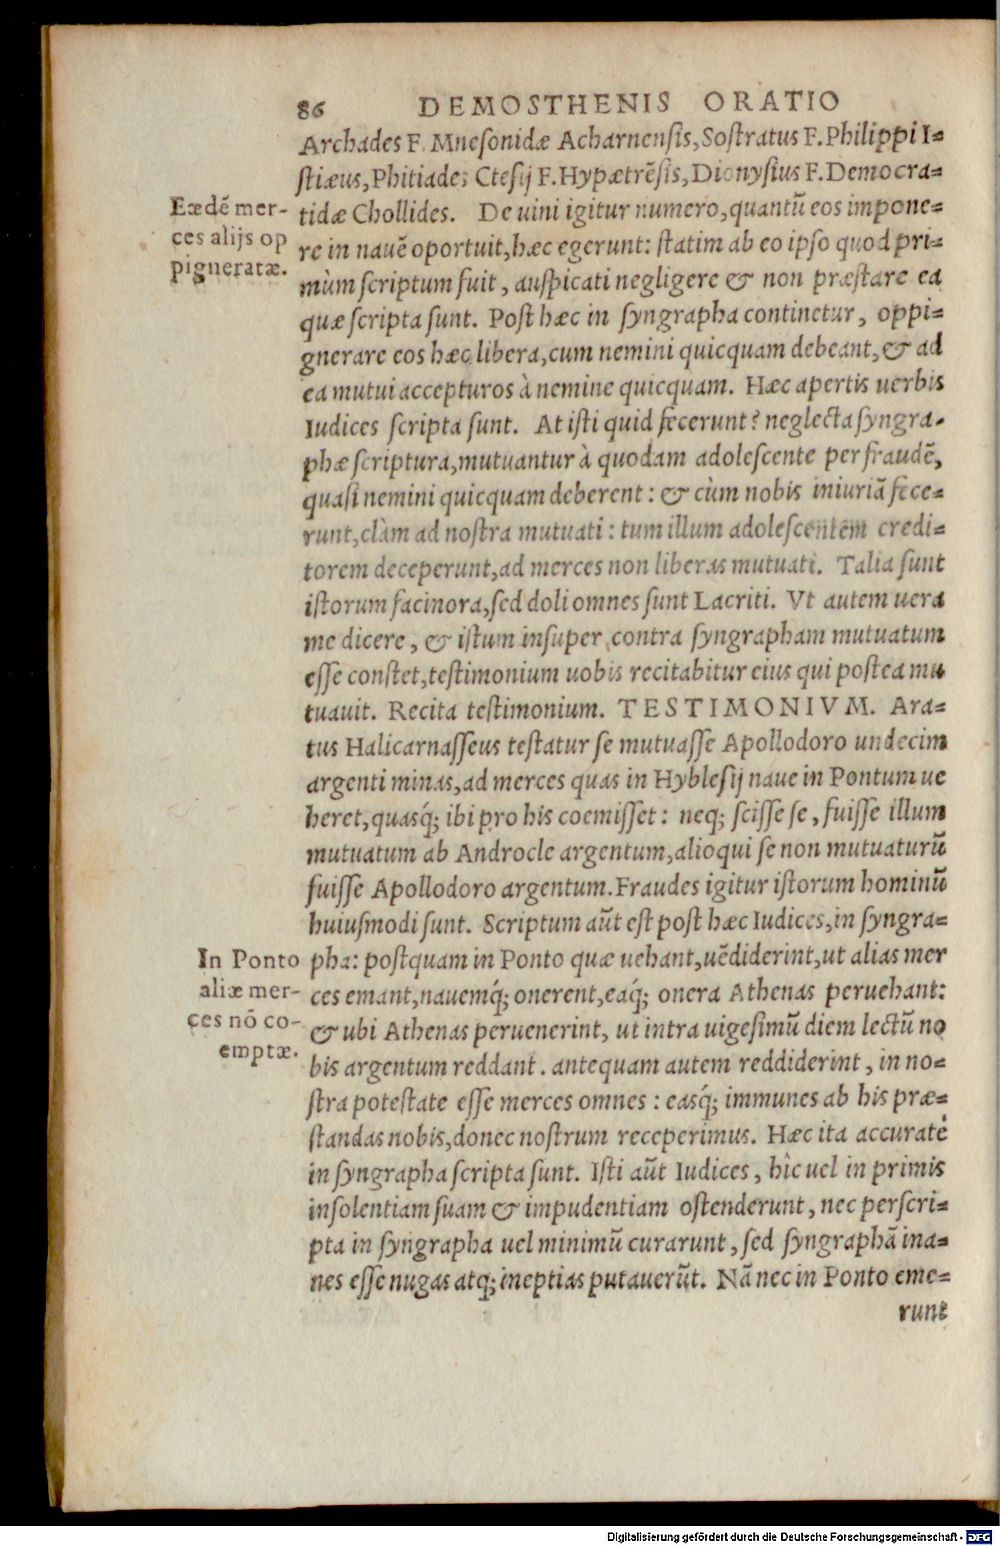 86 DEMOSTHENIS ORATIO
Archades F. Mnesonidæ Acharnensis, Sostratus F. Philippi I=
stiæus, Phitiades Ctesij F. Hypætrẽsis, Dionysius F. Democra=
tidæ Chollides. De uini igitur numero, quantũ eos impone=
re in nauẽ oportuit, hæc egerunt: statim ab eo ipso quod pri=
mùm scriptum fuit, auspicati negligere & non præstare ea
quæ scripta sunt. Post hæc in syngrapha continetur, oppi=
gnerare eos hæc libera, cum nemini quicquam debeant, & ad
ea mutui accepturos à nemine quicquam. Hæc apertis uerbis
Iudices scripta sunt. At isti quid fecerunt? neglecta syngra=
phæ scriptura, mutuantur à quodam adolescente per fraudẽ,
quasi nemini quicquam deberent: & cùm nobis iniuriã fece=
runt, clàm ad nostra mutuati: tum illum adolescentem credi=
torem deceperunt, ad merces non liberas mutuati. Talia sunt
istorum facinora, sed doli omnes sunt Lacriti. Vt autem uera
me dicere, & istum insuper contra syngrapham mutuatum
esse constet, testimonium uobis recitabitur eius qui postea mu
tuauit. Recita testimonium. TESTIMONIVM. Ara=
tus Halicarnasseus testatur se mutuasse Apollodoro undecim
argenti minas, ad merces quas in Hyblesij naue in Pontum ue
heret, quasq́; ibi pro his coemisset: neq; scisse se, fuisse illum
mutuatum ab Androcle argentum, alioqui se non mutuaturũ
fuisse Apollodoro argentum. Fraudes igitur istorum hominũ
huiusmodi sunt. Scriptum aũt est post hæc Iudices, in syngra=
pha: postquam in Ponto quæ uehant, uẽdiderint, ut alias mer
ces emant, nauemq́; onerent, eaq́; onera Athenas peruehant:
& ubi Athenas peruenerint, ut intra uigesimũ diem lectũ no
bis argentum reddant. antequam autem reddiderint, in no=
stra potestate esse merces omnes: easq́; immunes ab his præ=
standas nobis, donec nostrum receperimus. Hæc ita accuratè
in syngrapha scripta sunt. Isti aũt Iudices, hîc uel in primis
insolentiam suam & impudentiam ostenderunt, nec perscri=
pta in syngrapha uel minimũ curarunt, sed syngraphã ina=
nes esse nugas atq; ineptias putauerũt. Nã nec in Ponto eme=
runt
Eædẽ mer-
ces alijs op
pigneratæ.
In Ponto
aliæ mer-
ces nõ co-
emptæ.
Digitalisierung gefördert durch die Deutsche Forschungsgemeinschaft - DFG